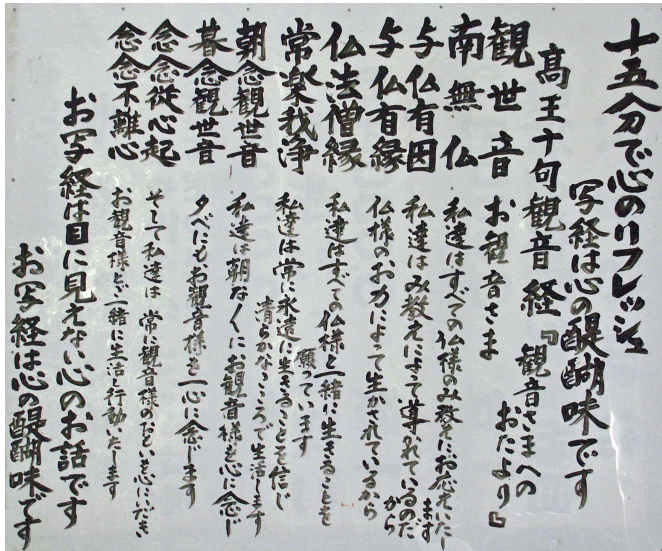 十五分で心のリフレッシュ
写経は心の醍醐味です
高王十句観音経『観音さまへの
おたより』
観世音 お観音さま
南無仏 私達はすべての仏様のみ教えにお応えいたし
ます
与仏有因 私達はみ教えによって導かれているのだ
から
与仏有縁 仏様のお力によって生かされているから
仏法僧縁 私達はすべての仏様と一緒に生きることを
願っています
常楽我浄 私達は常に永遠に生きることを信じ
清らかなこころで生活します
朝念観世音 私達は朝な／＼にお観音様を心に念じ
暮念観世音 夕べにもお観音様を一心に念じます
念念従心起 そして私達は常に観音様のおもいを心にいだき
念念不離心 お観音様と一緒に生活し行動いたします
お写経は目に見えない心のお話です
お写経は心の醍醐味です